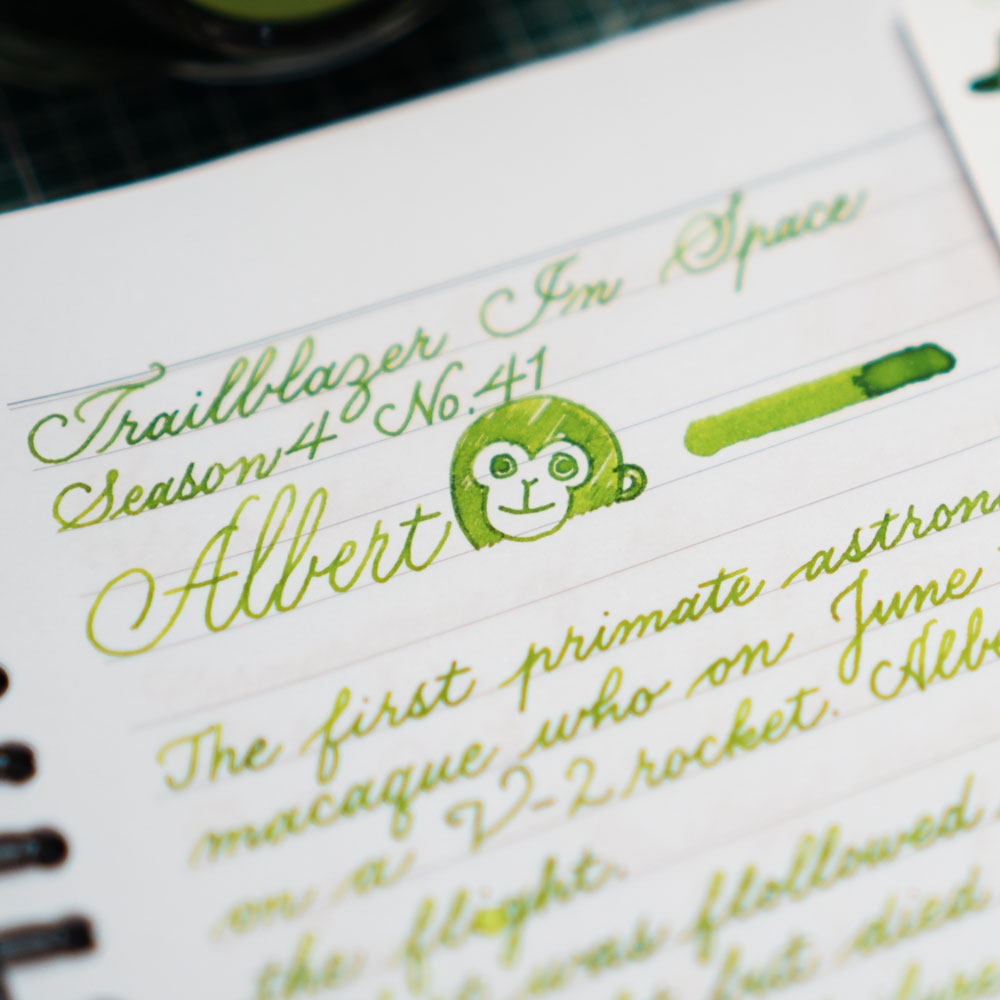 Trailblazer In Space
Season 4 No. 41
Albert
The first primate
macaque who on June
on a V-2 rocket.
the flight.
was fllollowed
but died